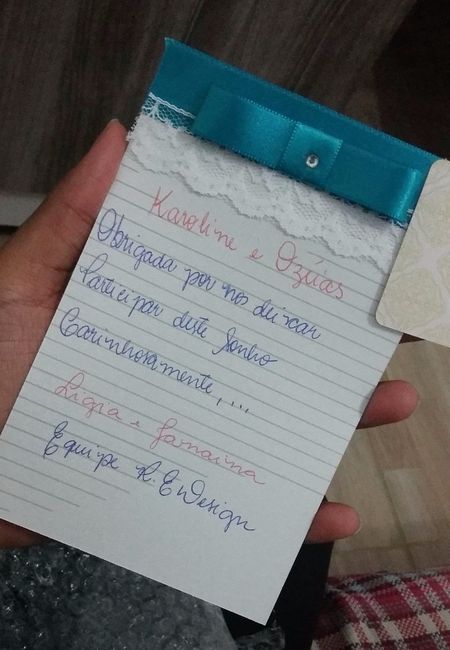 Karoline e Ozéias
Obrigada por nos deixar
Participar deste Sonho
Carinhosamente, ...
Ligia e Janaina
Equipe R. E Design